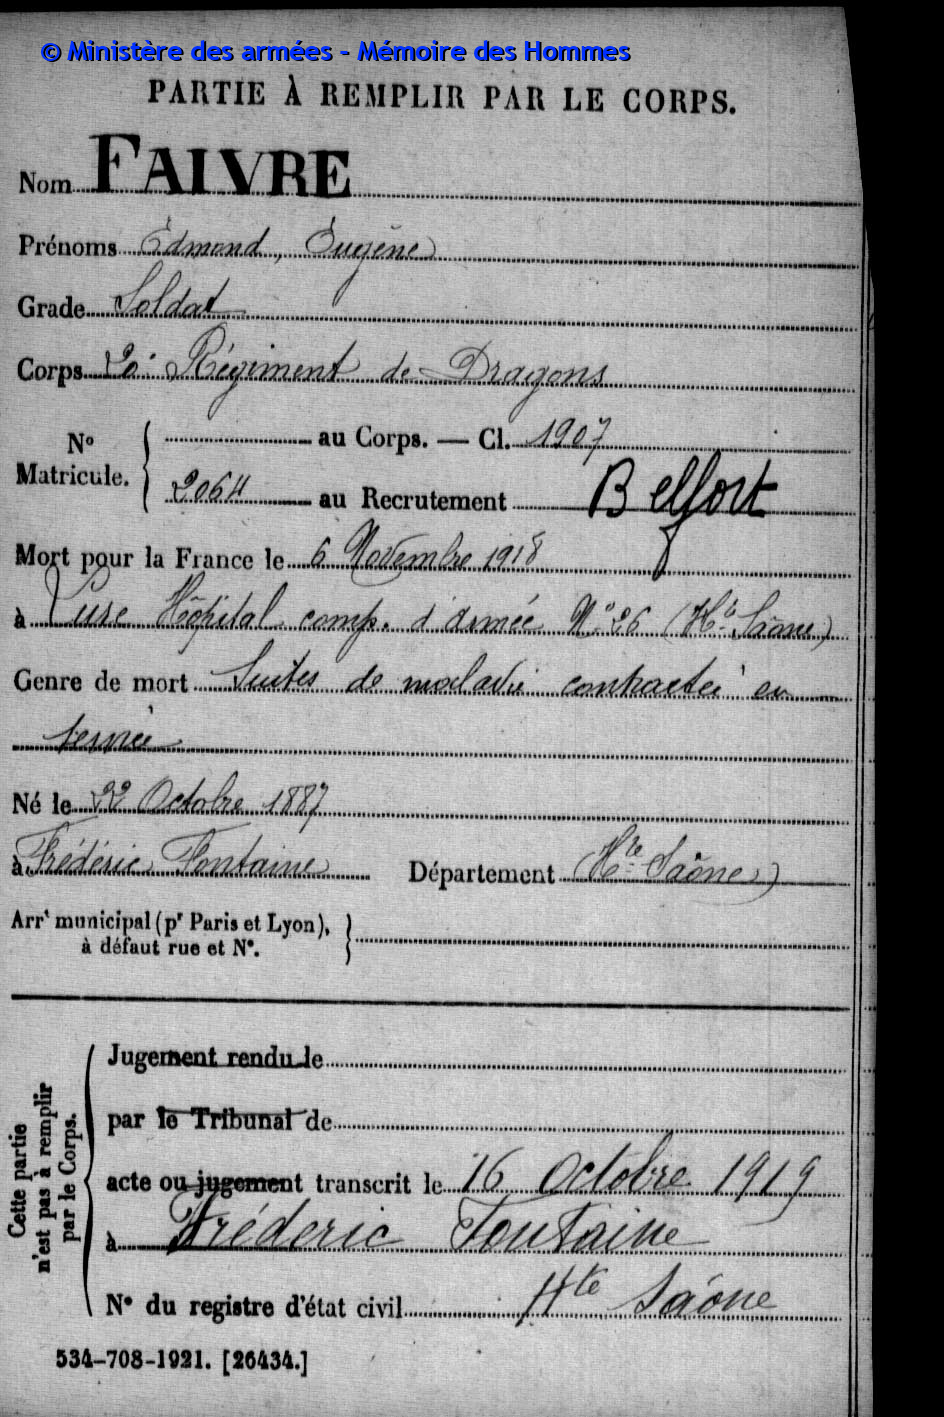 © Ministère des armées - Mémoire des Hommes
PARTIE À REMPLIR PAR LE CORPS.
Nom FAIVRE
Prénoms Edmond, Eugène
Grade Soldat
Corps 2e Régiment de Dragons
No Matricule. { au Corps. — Cl. 1907
2064 au Recrutement Belfort
Mort pour la France le 6 Novembre 1918
à Lure Hôpital comp. d'armée No 26 (Hte Saône)
Genre de mort Suites de maladie contractée en
service
Né le 22 Octobre 1887
à Frédéric Fontaine Département (Hte Saône)
Arrt municipal (pr Paris et Lyon), }
à défaut rue et No.
Cette partie n'est pas à remplir par le Corps.
Jugement rendu le
par le Tribunal de
acte ou jugement transcrit le 16 Octobre 1919
à Fréderic Fontaine
No du registre d'état civil Hte Saône
534-708-1921. [26434.]